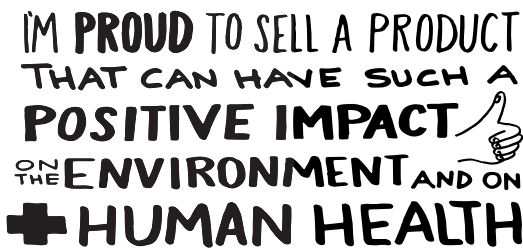 I'M PROUD TO SELL A PRODUCT
THAT CAN HAVE SUCH A
POSITIVE IMPACT
ON THE ENVIRONMENT AND ON
HUMAN HEALTH